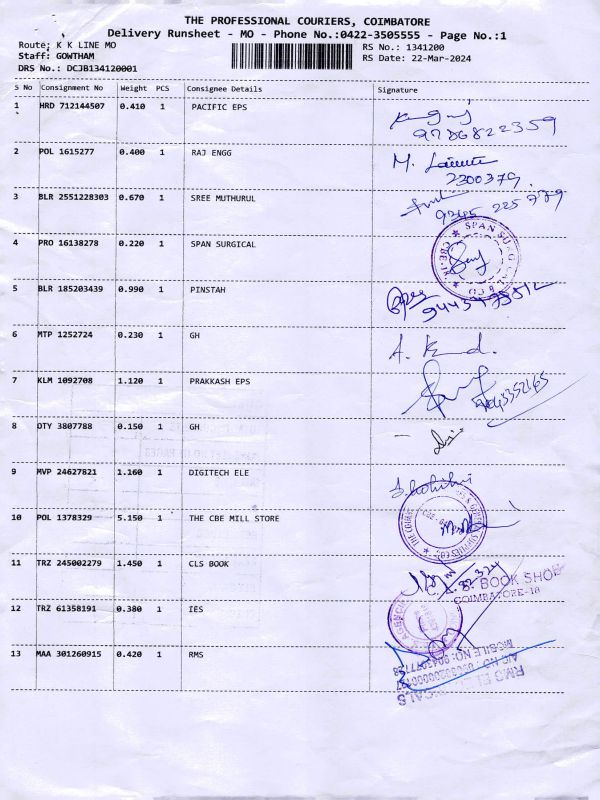 THE PROFESSIONAL COURIERS, COIMBATORE
Delivery Runsheet - MO - Phone No.:0422-3505555 - Page No.:1
Route: K K LINE MO
RS No.: 1341200
Staff: GOWTHAM
RS Date: 22-Mar-2024
DRS No.: DCJB134120001
S No Consignment No Weight PCS Consignee Details Signature
1 HRD 712144507 0.410 1 PACIFIC EPS
9786822359
2 POL 1615277 0.400 1 RAJ ENGG M.
2300379
3 BLR 2551228303 0.670 1 SREE MUTHURUL
9245 225 779
4 PRO 16138278 0.220 1 SPAN SURGICAL
SPAN SURGICAL
5 BLR 185203439 0.990 1 PINSTAH
6 MTP 1252724 0.230 1 GH
7 KLM 1092708 1.120 1 PRAKKASH EPS
8 OTY 3807788 0.150 1 GH
9 MVP 24627821 1.160 1 DIGITECH ELE
10 POL 1378329 5.150 1 THE CBE MILL STORE
11 TRZ 245002279 1.450 1 CLS BOOK
BOOK SHOP
COIMBATORE-18
12 TRZ 61358191 0.380 1 IES
13 MAA 301260915 0.420 1 RMS
MOBILE NO: